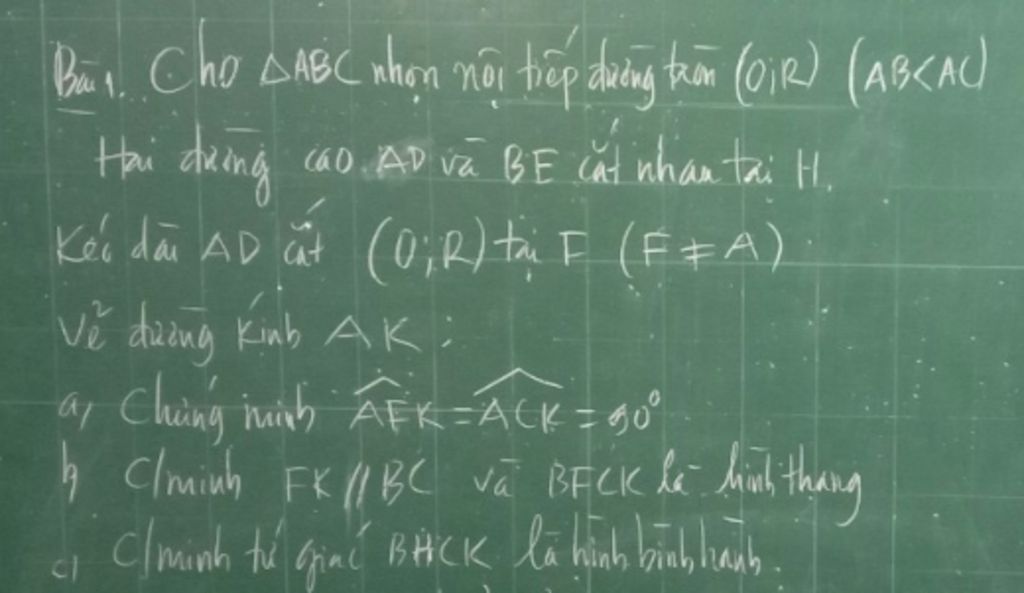 Bài 1. Cho △ABC nhọn nội tiếp đường tròn (O;R) (AB<AC)
Hai đường cao AD và BE cắt nhau tại H.
Kéo dài AD cắt (O;R) tại F (F≠A)
Vẽ đường kính AK.
a, Chứng minh \widehat{AFK} = \widehat{ACK} = 90°
b, C/minh FK // BC và BFCK là hình thang
c, C/minh tứ giác BHCK là hình bình hành.